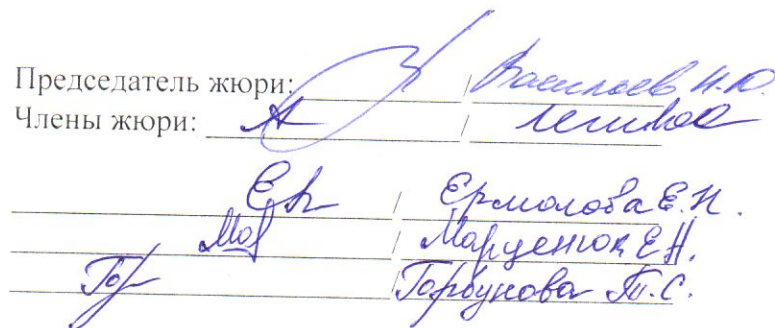 Председатель жюри: / Васильев Н.Ю.
Члены жюри: /
/ Ермолова Е.Н.
/ Марценюк Е.Н.
/ Горбунова Т.С.